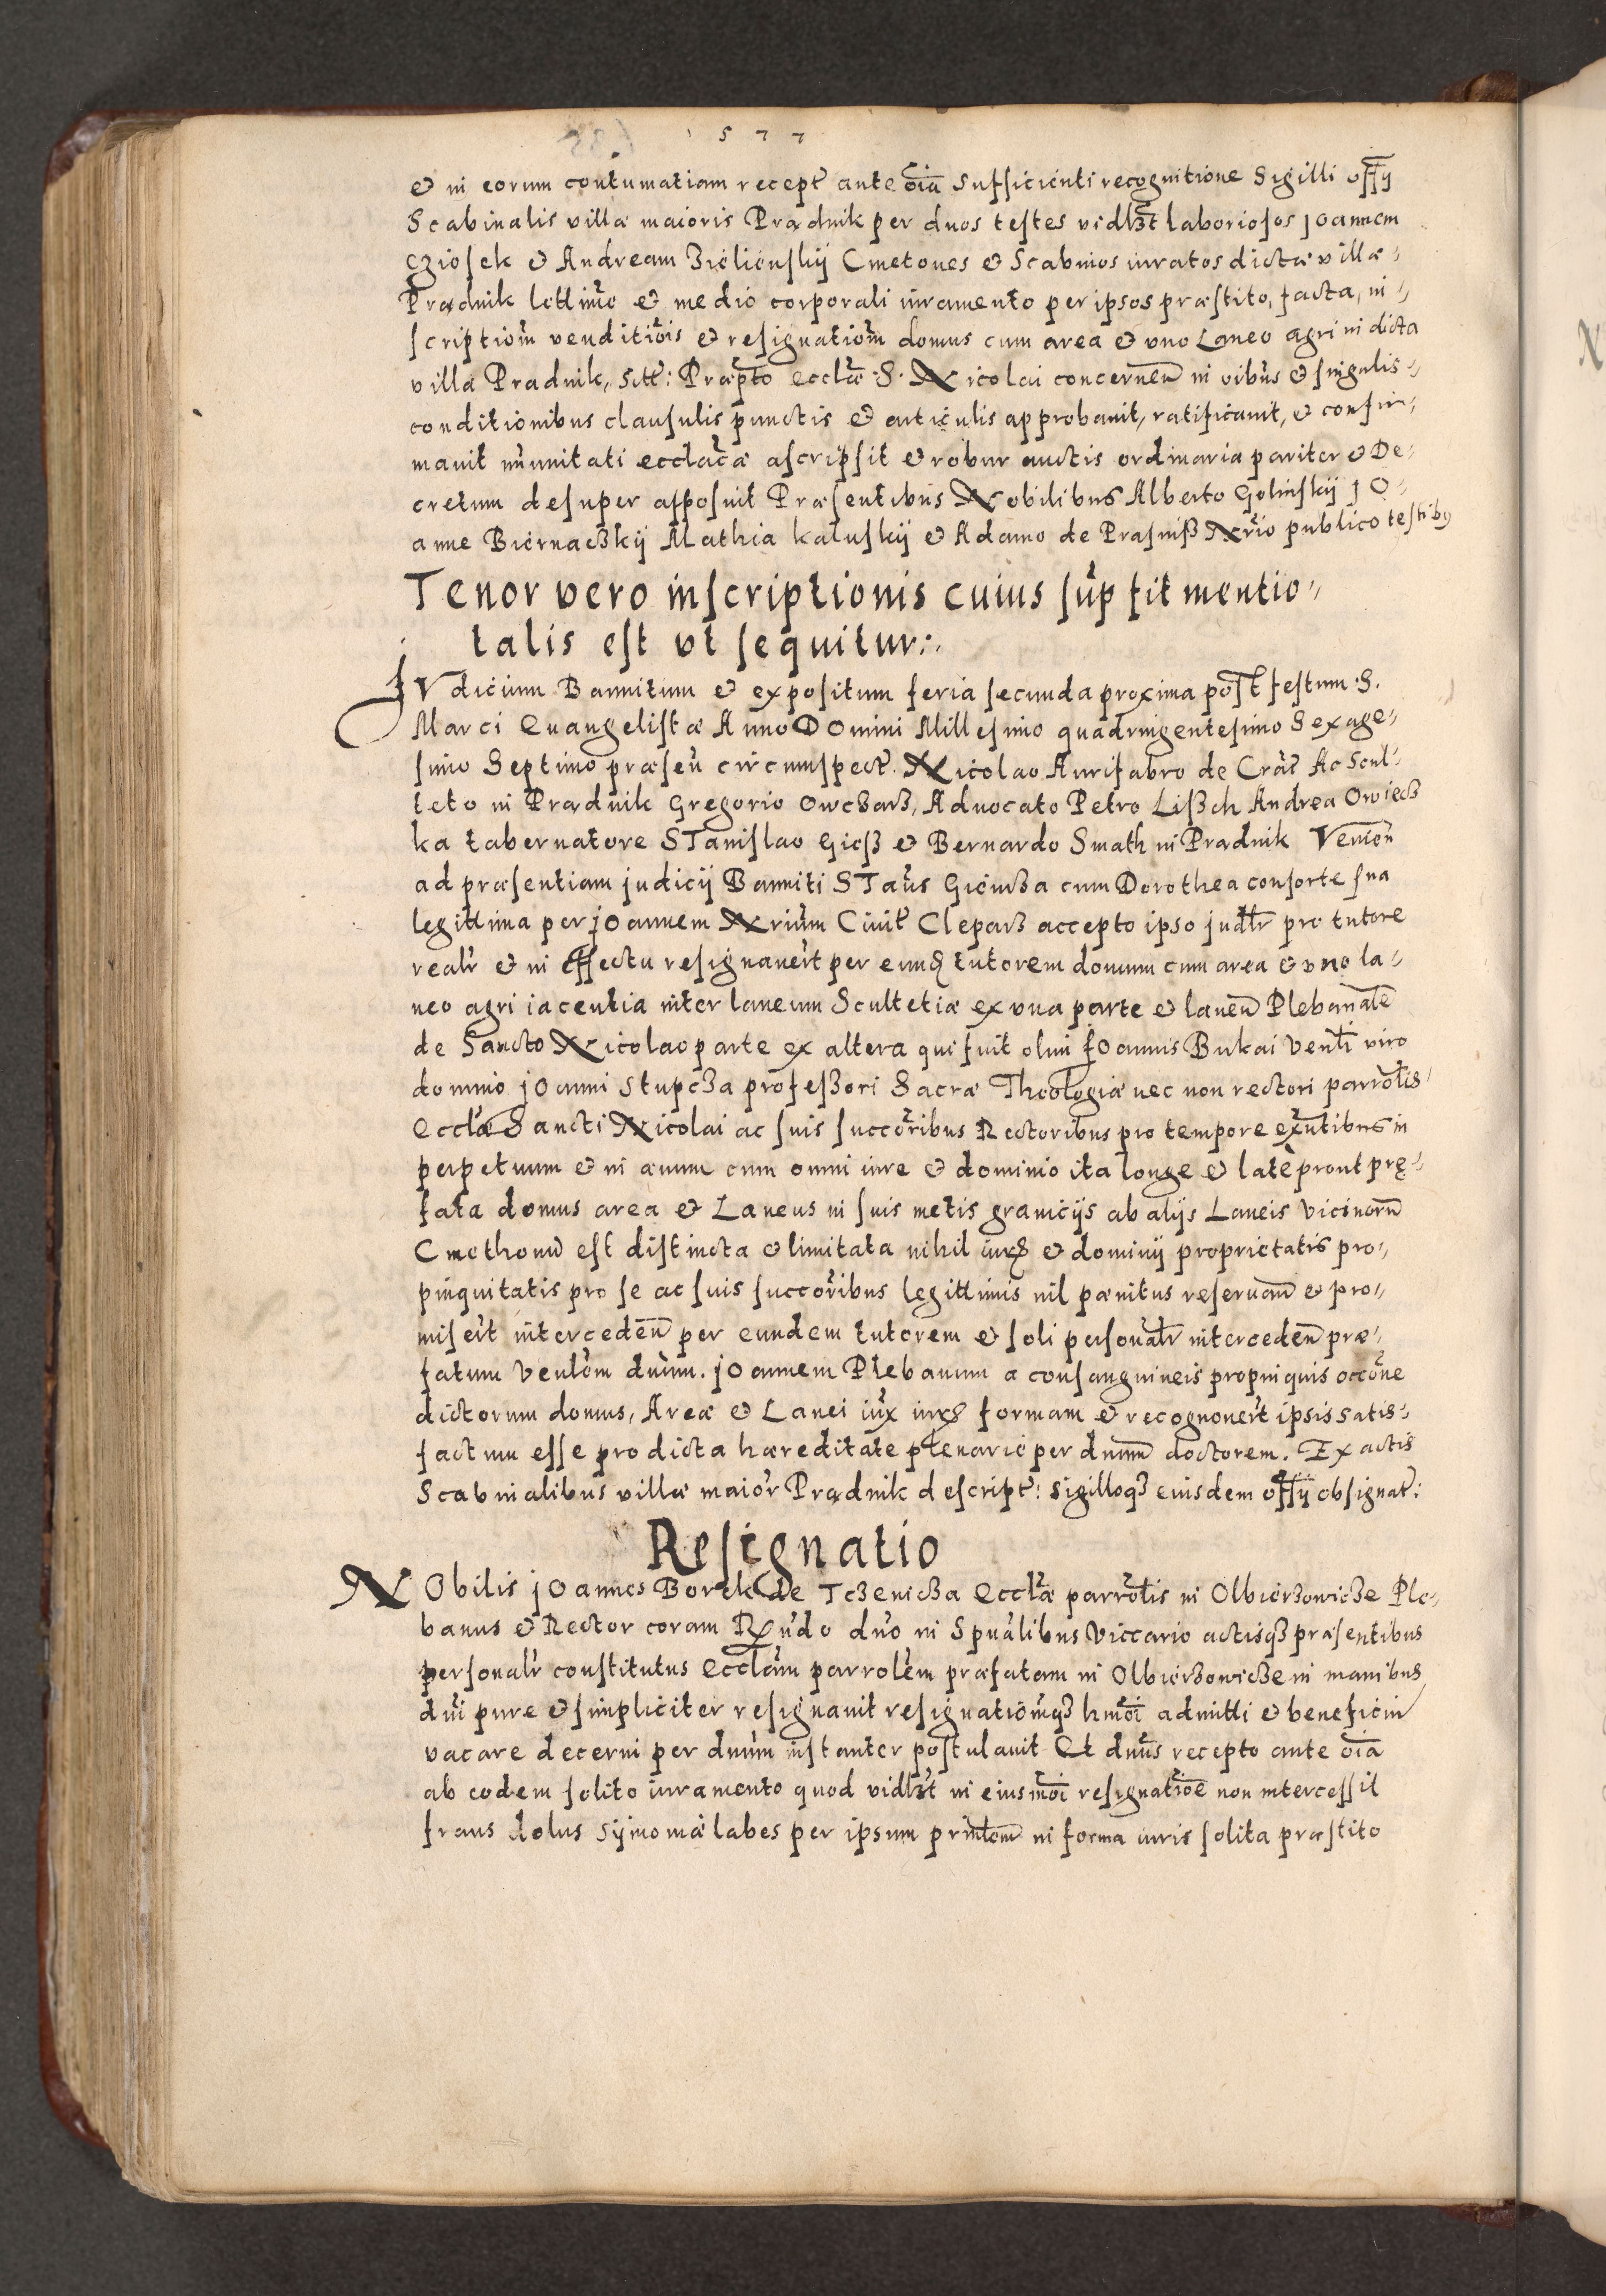 577
& in eorum contumatiam recept̃ ante o͠ia sufficienti recognitione Sigilli off͠ÿ
Scabinalis villæ maioris Prądnik per duos testes vidlꝫt laboriosos joannem
Cziosek & Andream Zielienskÿ Cmetones & Scabinos iuratos dictæ villæ
Prądnik l͠ettimo & medio corporali iuramento per ipsos præstito, facta, in-
scription̄ venditio͠is & resignation̄ domus cum area & vno Laneo agri in dicta
villa Pradnik, Præp͠to eccl͠æ S. Nicolai concernen̄ in o͠ibus & singulis
conditionibus clausulis punctis & articulis approbauit, ratificauit, & confir-
mauit im̄unitati eccl͠ācæ ascripsit & robur auctis ordinaria pariter & De-
cretum desuper apposuit Præsentibus Nobilibus Alberto Golinskÿ jO-
anne Biernaczkÿ Mathia kaluskÿ & Adamo de Prasnisz N͠rio publico testibꝰ
Tenor vero inscriptionis cuius su͠p fit mentio
talis est vt sequitur:.
JVdicium Bannitum & expositum feria secunda proxima post festum S.
Marci Euangelistæ Anno DOmini Millesimo quadringentesimo Sexage-
simo Septimo præsen̄ circumspect̃. Nicolao Aurifabro de Cra͠c Ac Scul-
teto in Prądnik Gregorio Owczarz, Aduocato Petro Liszch Andrea Owiecz
ka tabernatore STanislao Giesz & Bernardo Smath in Prądnik Venien̄
ad præsentiam judicÿ Banniti STa͠us Giemza cum Dorothea consorte sua
legittima per jOannem N͠rium Ciuit̃ Cleparz accepto ipso jud͠lr pro tutore
real͠r & in effectu resignauer͠t per eundẽ tutorem domum cum area & vno la-
neo agri iacentia inter laneum Scultetiæ ex vna parte & laneū Plebanale͠
de Sancto Nicolao parte ex altera qui fuit olim jOannis Bukai Ven͠ti viro
domino jOanni Stupcza professori Sacræ Theologiæ nec non rectori parro͠lis
Eccl͠æ Sancti Nicolai ac suis succo͠ribus Rectoribus pro tempore ex͠ntibus in
perpetuum & in æuum cum omni iure & dominio ita longe & latè prout prę-
fata domus area & Laneus in suis metis granicÿs ab alÿs Laneis vicinorū
Cmethonū est distincta & limitata nihil iurꝭ & dominÿ proprietatis pro-
pinquitatis pro se ac suis succo͠ribus legittimis nil pænitus reseruan̄ & pro-
miser͠t interceden̄ per eundem tutorem & soli personal͠r interceden̄ præ-
fatum Venl͠em dn͠um. jOannem Plebanum a consanguineis propinquis occo͠ne
dictorum domus, Areæ & Lanei iux iurꝭ formam & recognouer͠t ipsis satis-
factum esse pro dicta hæreditate plenariè per dnum̄ doctorem. Ex actis
Scabinalibus villæ maior͠ Prądnik descript̃: sigilloqꝫ eiusdem off͠ÿ obsignat̃:
Resignatio
NObilis jOannes Borek de Tczenicza Eccl͠æ parro͠lis in Olbierzowicze Ple-
banus & Rector coram R͠ndo dn͠o in Sp͠ualibus Viccario actisqꝫ præsentibus
personal͠r constitutus Eccl͠am parrol͠em præfatam in Olbierzowicze in manibus
dn͠i pure & simpliciter resignauit resignation͠emqꝫ hmo͠i admitti & beneficiū
vacare decerni per dn͠um instanter postulauit Et dn͠us recepto ante o͠ia
ab eodem solito iuramento quod vidlꝫt in eiusmo͠i resignatio͠e non intercessit
fraus dolus Sÿmoniæ labes per ipsum prin͠lem in forma iuris solita præstito